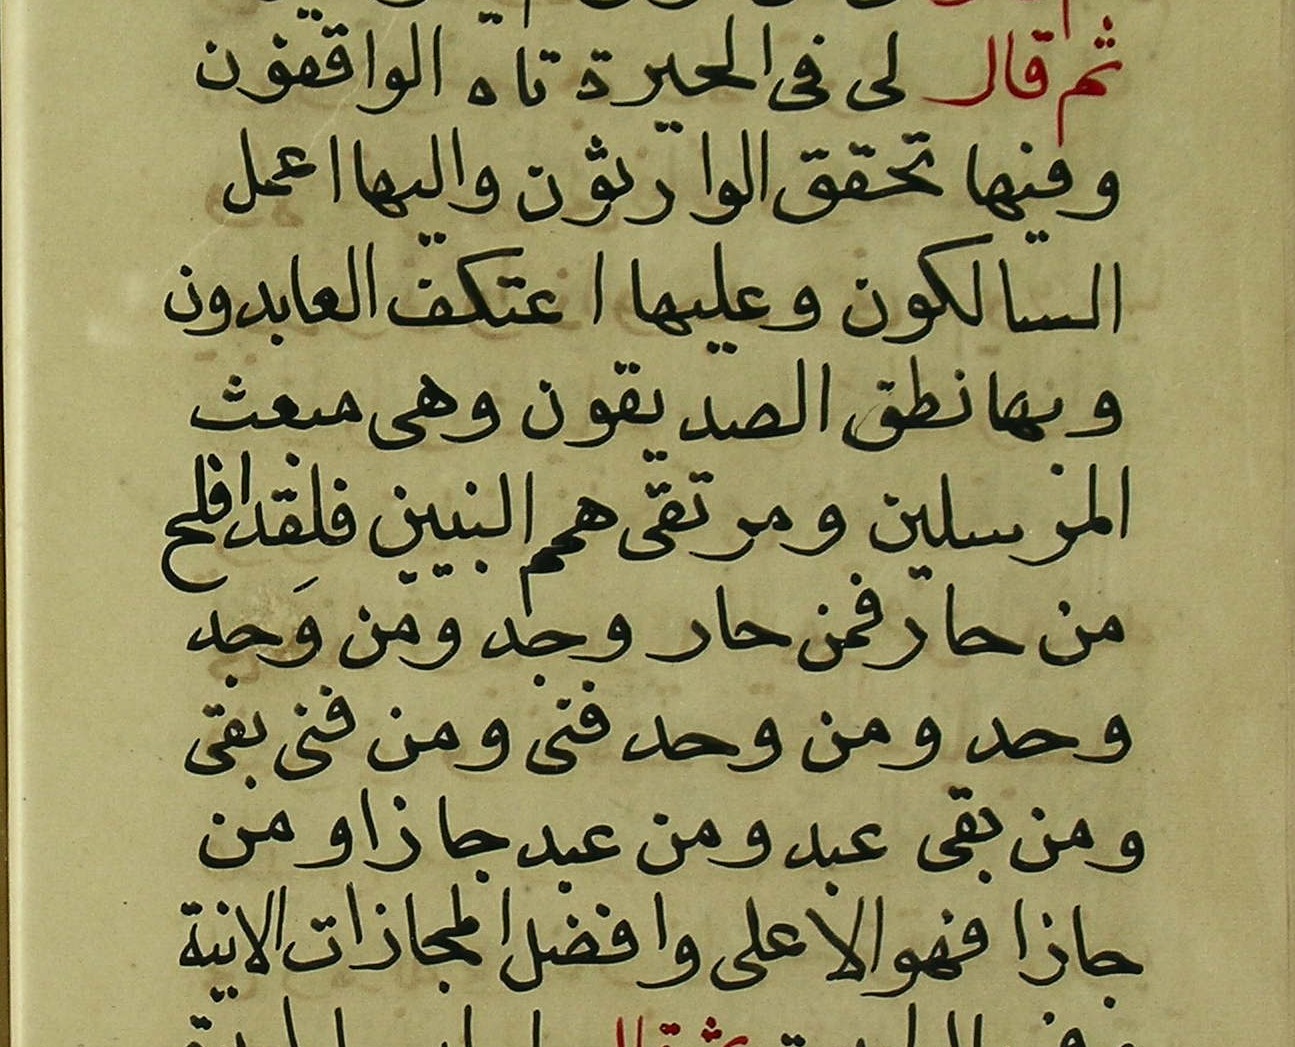 ثم قال لى فى الحيرة تاه الواقفون
وفيها تحقق الوارثون واليها اعمل
السالكون وعليها اعتكف العابدون
وبها نطق الصديقون وهى مبعث
المرسلين ومرتقى همم النبيين فلقد افلح
من حار فمن حار وجد ومن وَجد
وحد ومن وحد فنى ومن فنى بقى
ومن بقى عبد ومن عبد جازا ومن
جازا فهو الاعلى وافضل المجازات الانية